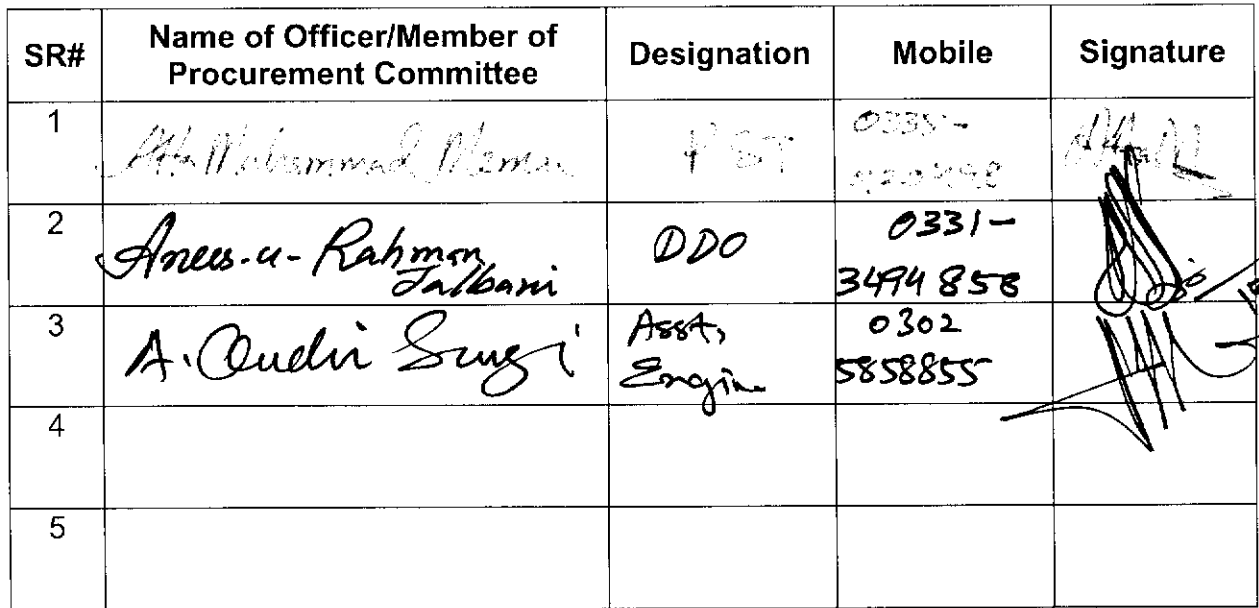 SR# Name of Officer/Member of Procurement Committee Designation Mobile Signature
1 Atta Muhammad Memon PST 0335-
2 Anees-u-Rahman Jalbani DDO 0331-3494858
3 A. Qudir Asst, Engin 0302 5858855
4
5